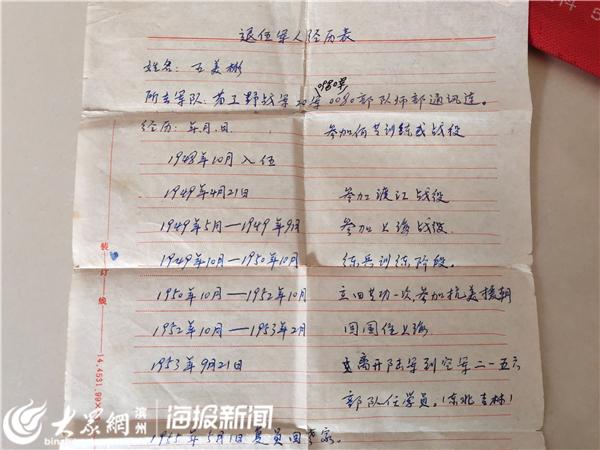 退伍军人经历表
姓名：王美彬
所在军队：第三野战军20军0080部队师部通讯连。
经历：年.月.日　参加何其训练或战役
1948年10月入伍
1949年4月21日　参加渡江战役
1949年5月—1949年9月　参加上海战役
1949年10月—1950年10月　练兵训练阶段。
1950年10月—1952年10月　立四等功一次，参加抗美援朝
1952年10月—1953年2月　回国住上海
1953年9月21日　离开陆军到空军二一五六
部队任学员。（东北吉林）
1955年5月1日复员回
装订线
大众网 滨州 海报新闻